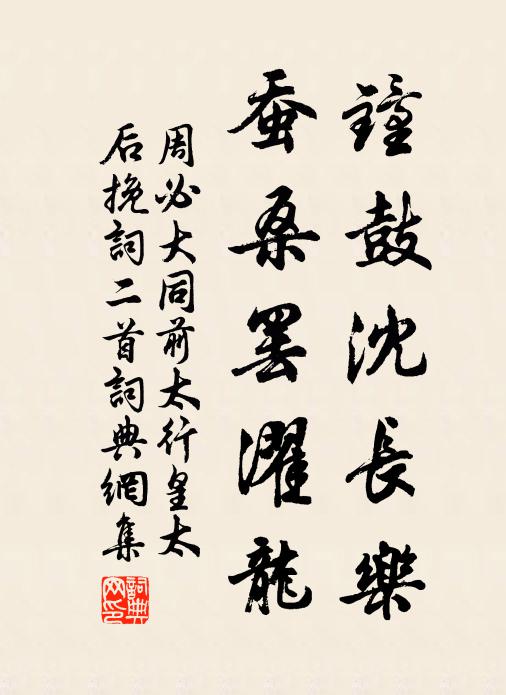 鐘鼓沈長樂
蚕桑罢濯龍
周必大同前太行皇太
后挽詞二首詞典網集
詞典網印